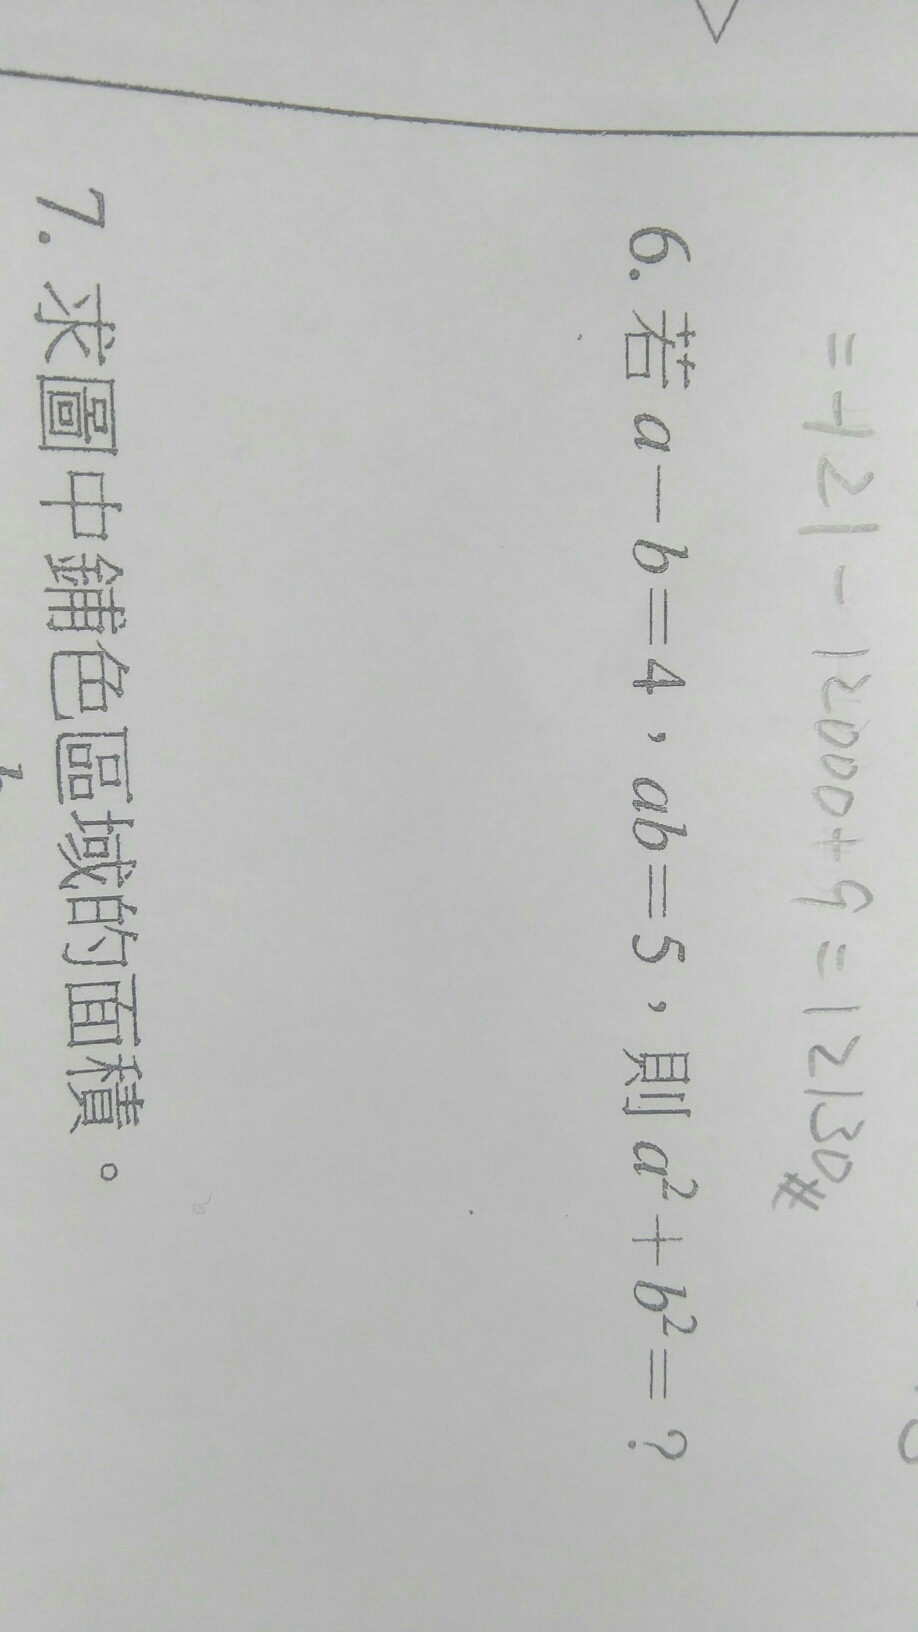 = 421 - 12000 + 9 = 12130#
6. 若 a－b＝4，ab＝5，則 a²＋b²＝？
7. 求圖中鋪色區域的面積。